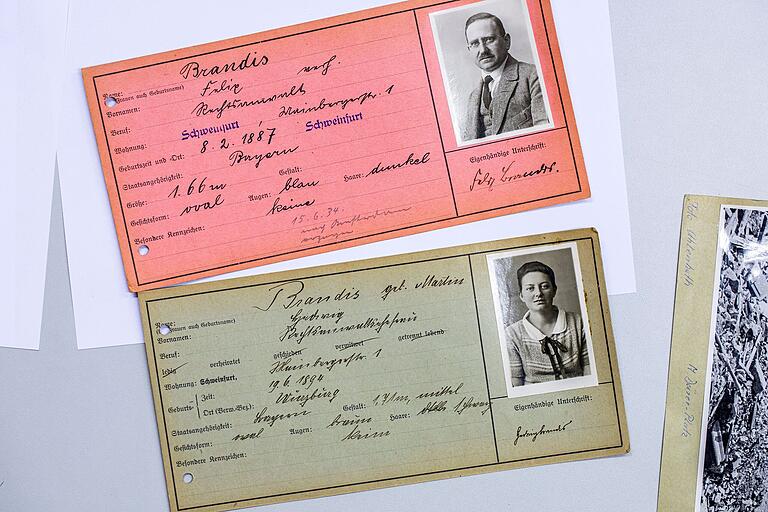 Name: Brandis verh.
(Frauen auch Geburtsname)
Vornamen: Felix
Beruf: Rechtsanwalt
Wohnung: Schweinfurt Mainbergerstr. 1
Geburtszeit und -Ort: 8. 2. 1887 Schweinfurt
Staatsangehörigkeit: Bayern
Größe: 1.66 m Gestalt:
Gesichtsform: oval Augen: blau Haare: dunkel
Besondere Kennzeichen: keine
15. 6. 34.
nach
Eigenhändige Unterschrift:
Felix Brandis.
Name: Brandis geb. Martin
(Frauen auch Geburtsname)
Vornamen: Hedwig
Beruf: Rechtsanwaltsehefrau
ledig verheiratet geschieden verwitwet getrennt lebend
Wohnung: Schweinfurt, Mainbergerstr. 1
Geburts- Zeit: 19. 6. 1894
Ort (Berw.-Bez.): Würzburg
Staatsangehörigkeit: Bayern Gestalt: 1,71m, mittel
Gesichtsform: oval Augen: braun Haare: schwarz
Besondere Kennzeichen: keine
Eigenhändige Unterschrift: